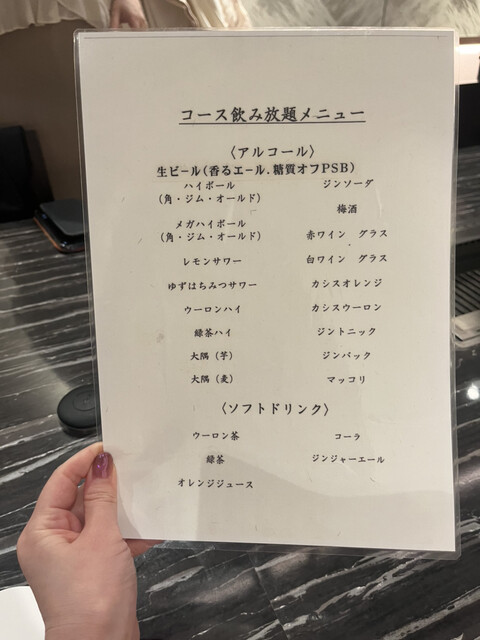 コース飲み放題メニュー
〈アルコール〉
生ビール(香るエール.糖質オフPSB)
ハイボール
(角・ジム・オールド)
メガハイボール
(角・ジム・オールド)
レモンサワー
ゆずはちみつサワー
ウーロンハイ
緑茶ハイ
大隅(芋)
大隅(麦)
ジンソーダ
梅酒
赤ワイン グラス
白ワイン グラス
カシスオレンジ
カシスウーロン
ジントニック
ジンバック
マッコリ
〈ソフトドリンク〉
ウーロン茶
緑茶
オレンジジュース
コーラ
ジンジャーエール